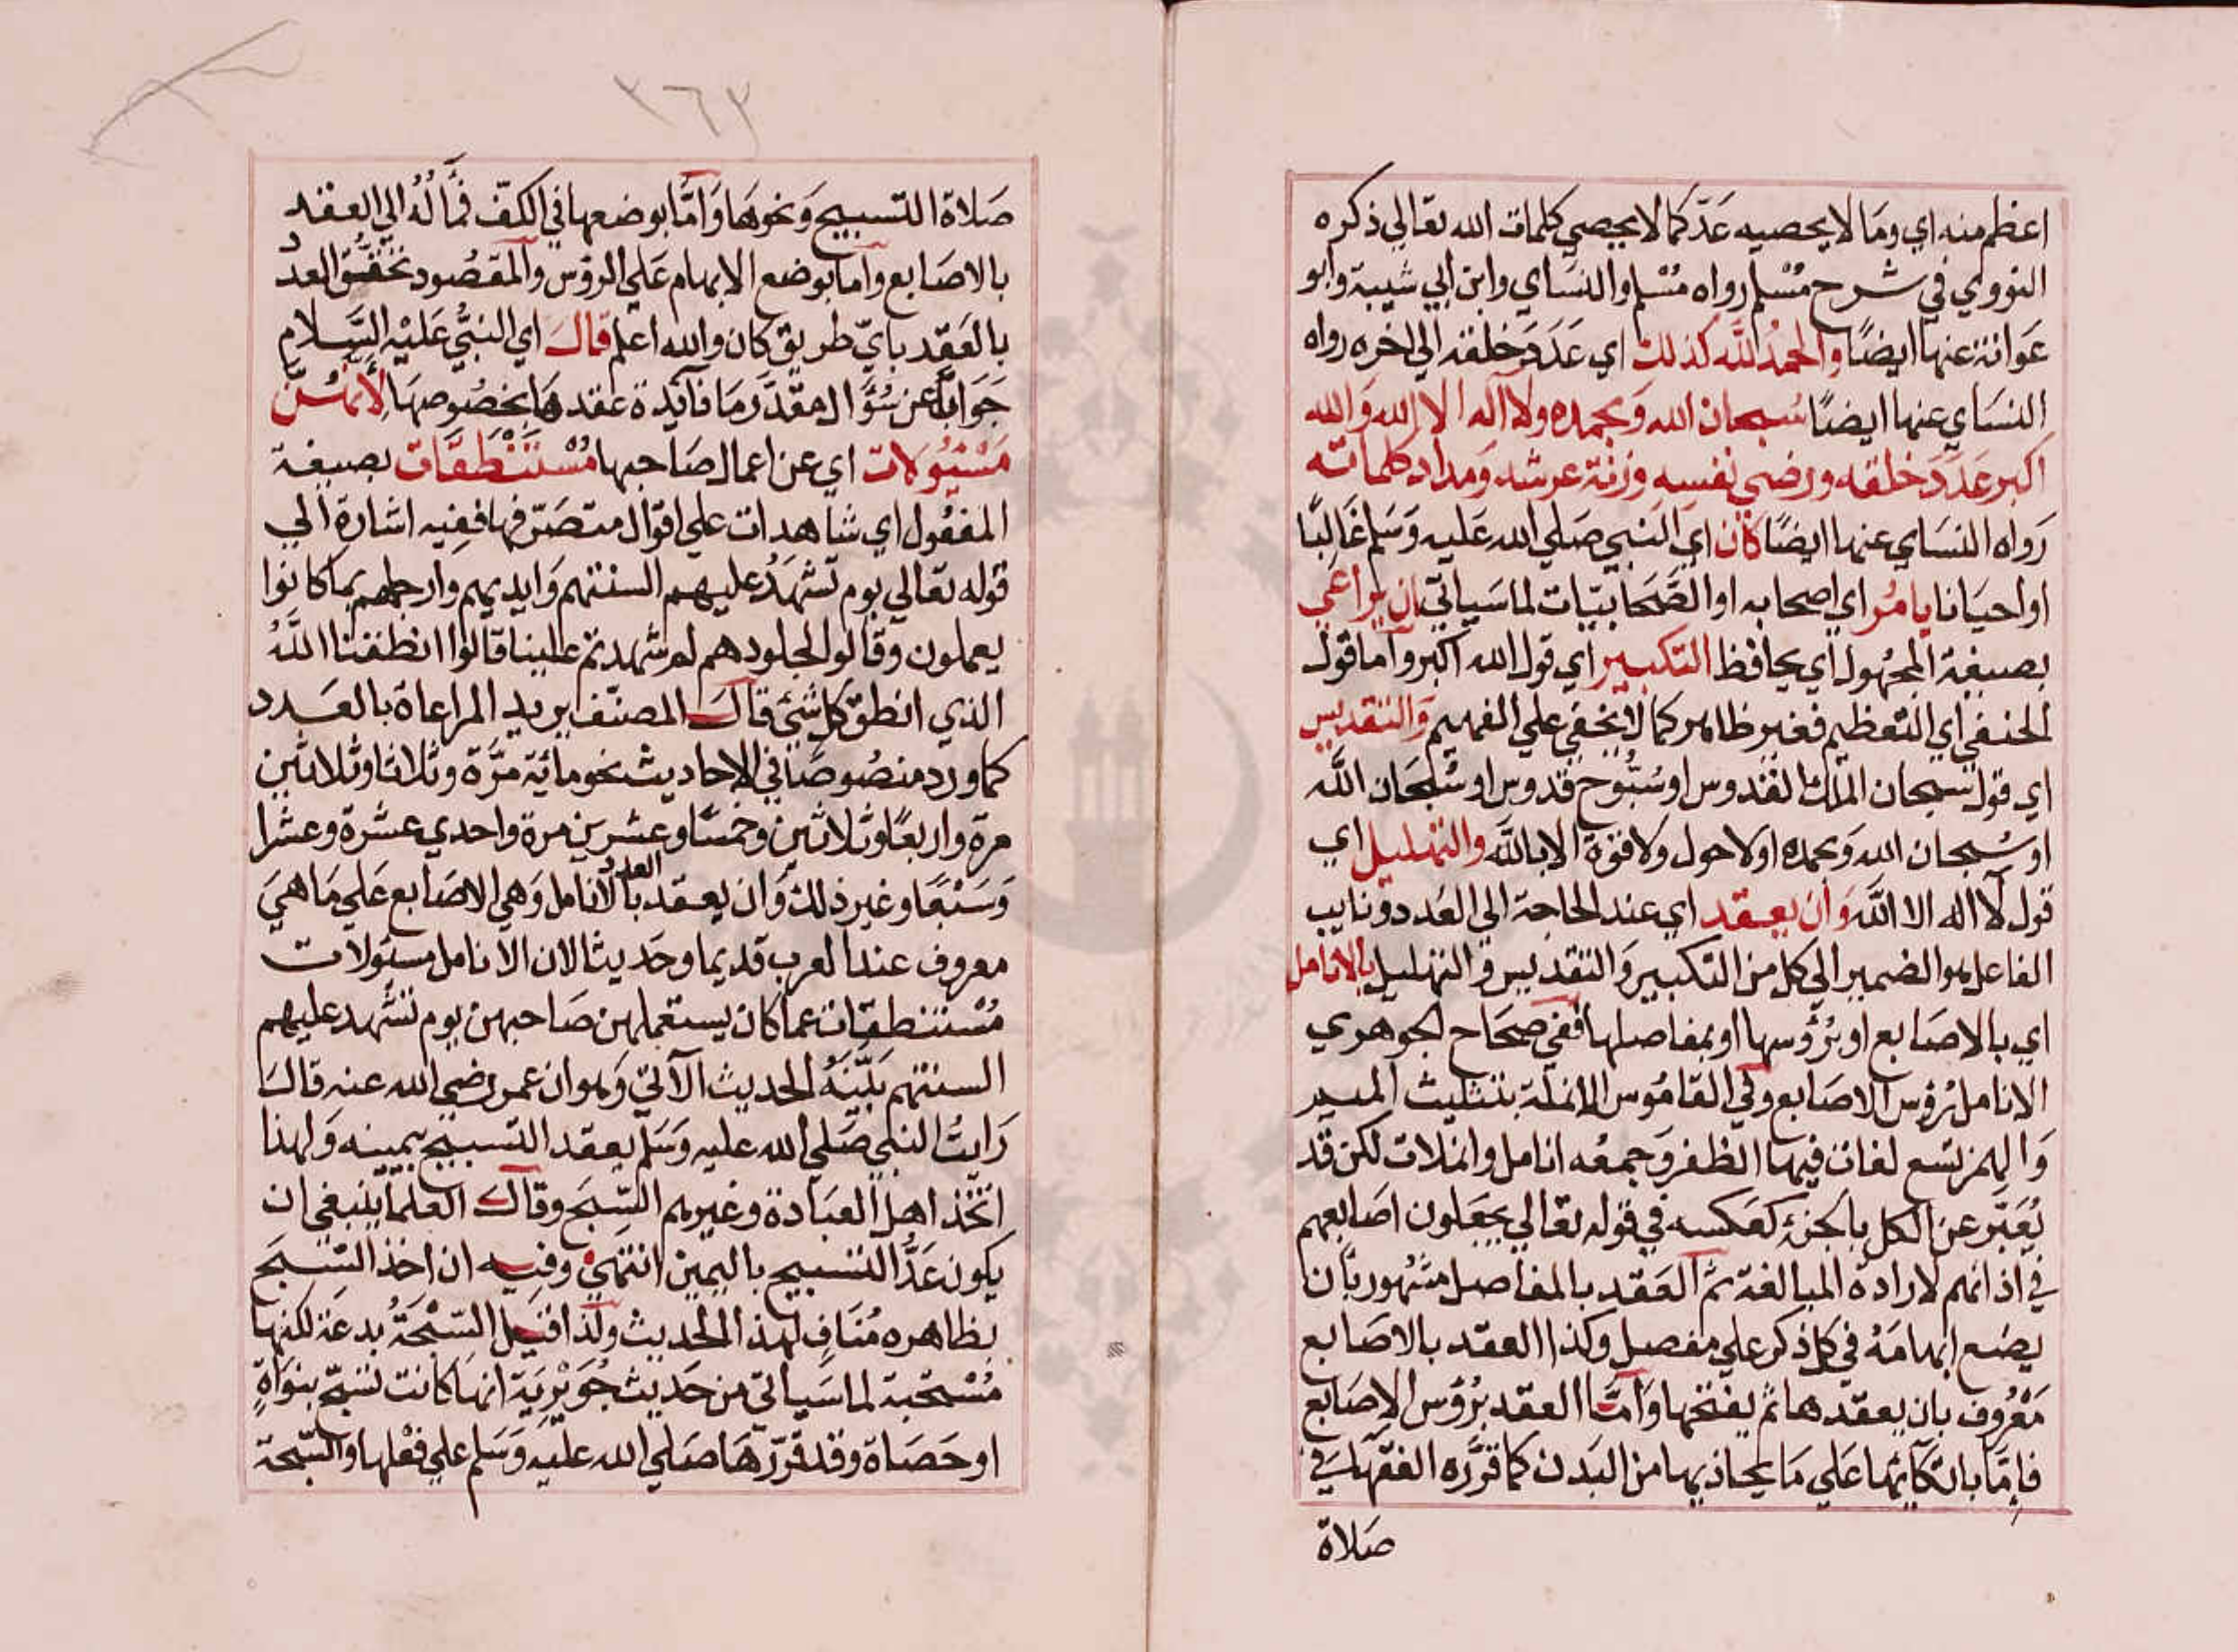 اعظم منه اي وما لا يحصيه عدّ كما لا يحصي كلمات الله تعالي ذكره
النووي في شرح مسلم رواه مسلم والنساي وابن ابي شيبة وابو
عوانة عنها ايضًا والحمد لله كذلك اي عدد خلقه الي اخره رواه
النساي عنها ايضًا سبحان الله وبحمده ولا اله الا الله والله
اكبر عدد خلقه ورضي نفسه وزنة عرشه ومداد كلماته
رواه النساي عنها ايضًا كان اي النبي صلي الله عليه وسلم غالبًا
او احيانا يامر اي اصحابه او الصحابيّات لما سياتي ان يراعي
بصيغة المجهول اي يحافظ التكبير اي قول الله اكبر واما قول
الحنفي اي التعظيم فغير ظاهر كما لا يخفي علي الفهيم والتقديس
اي قول سبحان الملك القدوس او سبّوح قدوس او سبحان الله
او سبحان الله وبحمده او لا حول ولا قوة الا بالله والتهليل اي
قول لا اله الا الله وان يعقد اي عند الحاجة الي العدد ونايب
الفاعل هو الضمير الي كل من التكبير والتقديس والتهليل بالانامل
اي بالاصابع او برؤسها او بمفاصلها ففي صحاح الجوهري
الانامل رؤس الاصابع وفي القاموس الانملة بتثليث الميم
والهمز تسع لغات فيها الظفر وجمعه انامل وانملات لكن قد
يُعبّر عن الكل بالجزء كعكسه في قوله تعالي يجعلون اصابعهم
في اذانهم لارادة المبالغة ثم العقد بالمفاصل مشهور بان
يضع ابهامه في كل ذكر علي مفصل وكذا العقد بالاصابع
معروف بان يعقدها ثم يفتحها وامّا العقد برؤس الاصابع
فامّا باتكائها علي ما يحاذيها من البدن كما قرّره الفقها في
صلاة
٣٦٣
صلاة التسبيح ونحوها وامّا بوضعها في الكفّ فمآله الي العقد
بالاصابع واما بوضع الابهام علي الرؤس والمقصود تحقّق العدد
بالعقد بايّ طريق كان والله اعلم قال اي النبي عليه السلام
جوابا عن سؤال مقدّر ما فآئدة عقدها بخصوصها لانهنّ
مسئولات اي عن اعمال صاحبها مستنطقات بصيغة
المفعول اي شاهدات علي اقوال متصرّفها ففيه اشارة الي
قوله تعالي يوم تشهد عليهم السنتهم وايديهم وارجلهم بما كانوا
يعملون وقالوا لجلودهم لم شهدتم علينا قالوا انطقنا الله
الذي انطق كل شئ قال المصنّف يريد المراعاة بالعدد
كما ورد منصوصا في الاحاديث نحو مائة مرّة وثلاثا وثلاثين
مرة واربعا وثلاثين وخمسًا وعشرين مرة واحدي عشرة وعشرا
وسبعًا وغير ذلك وان يعقد العدد بالانامل وهي الاصابع علي ما هي
معروف عند العرب قديما وحديثا لان الانامل مسئولات
مستنطقات عما كان يستعملهن صاحبهن يوم تشهد عليهم
السنتهم بيّنه الحديث الآتي وهو ان عمر رضي الله عنه قال
رايت النبي صلي الله عليه وسلم يعقد التسبيح بيمينه ولهذا
اتخذ اهل العبادة وغيرهم السّبح وقال العلما ينبغي ان
يكون عدّ التسبيح باليمين انتهي وفيه ان اخذ السّبح
بظاهره مُنافٍ لهذا الحديث ولذا قيل السّبحة بدعة لكنها
مستحبة لما سياتي من حديث جويرية انها كانت تسبّح بنواةٍ
او حصاة وقد قرّرها صلي الله عليه وسلم علي فعلها والسّبحة